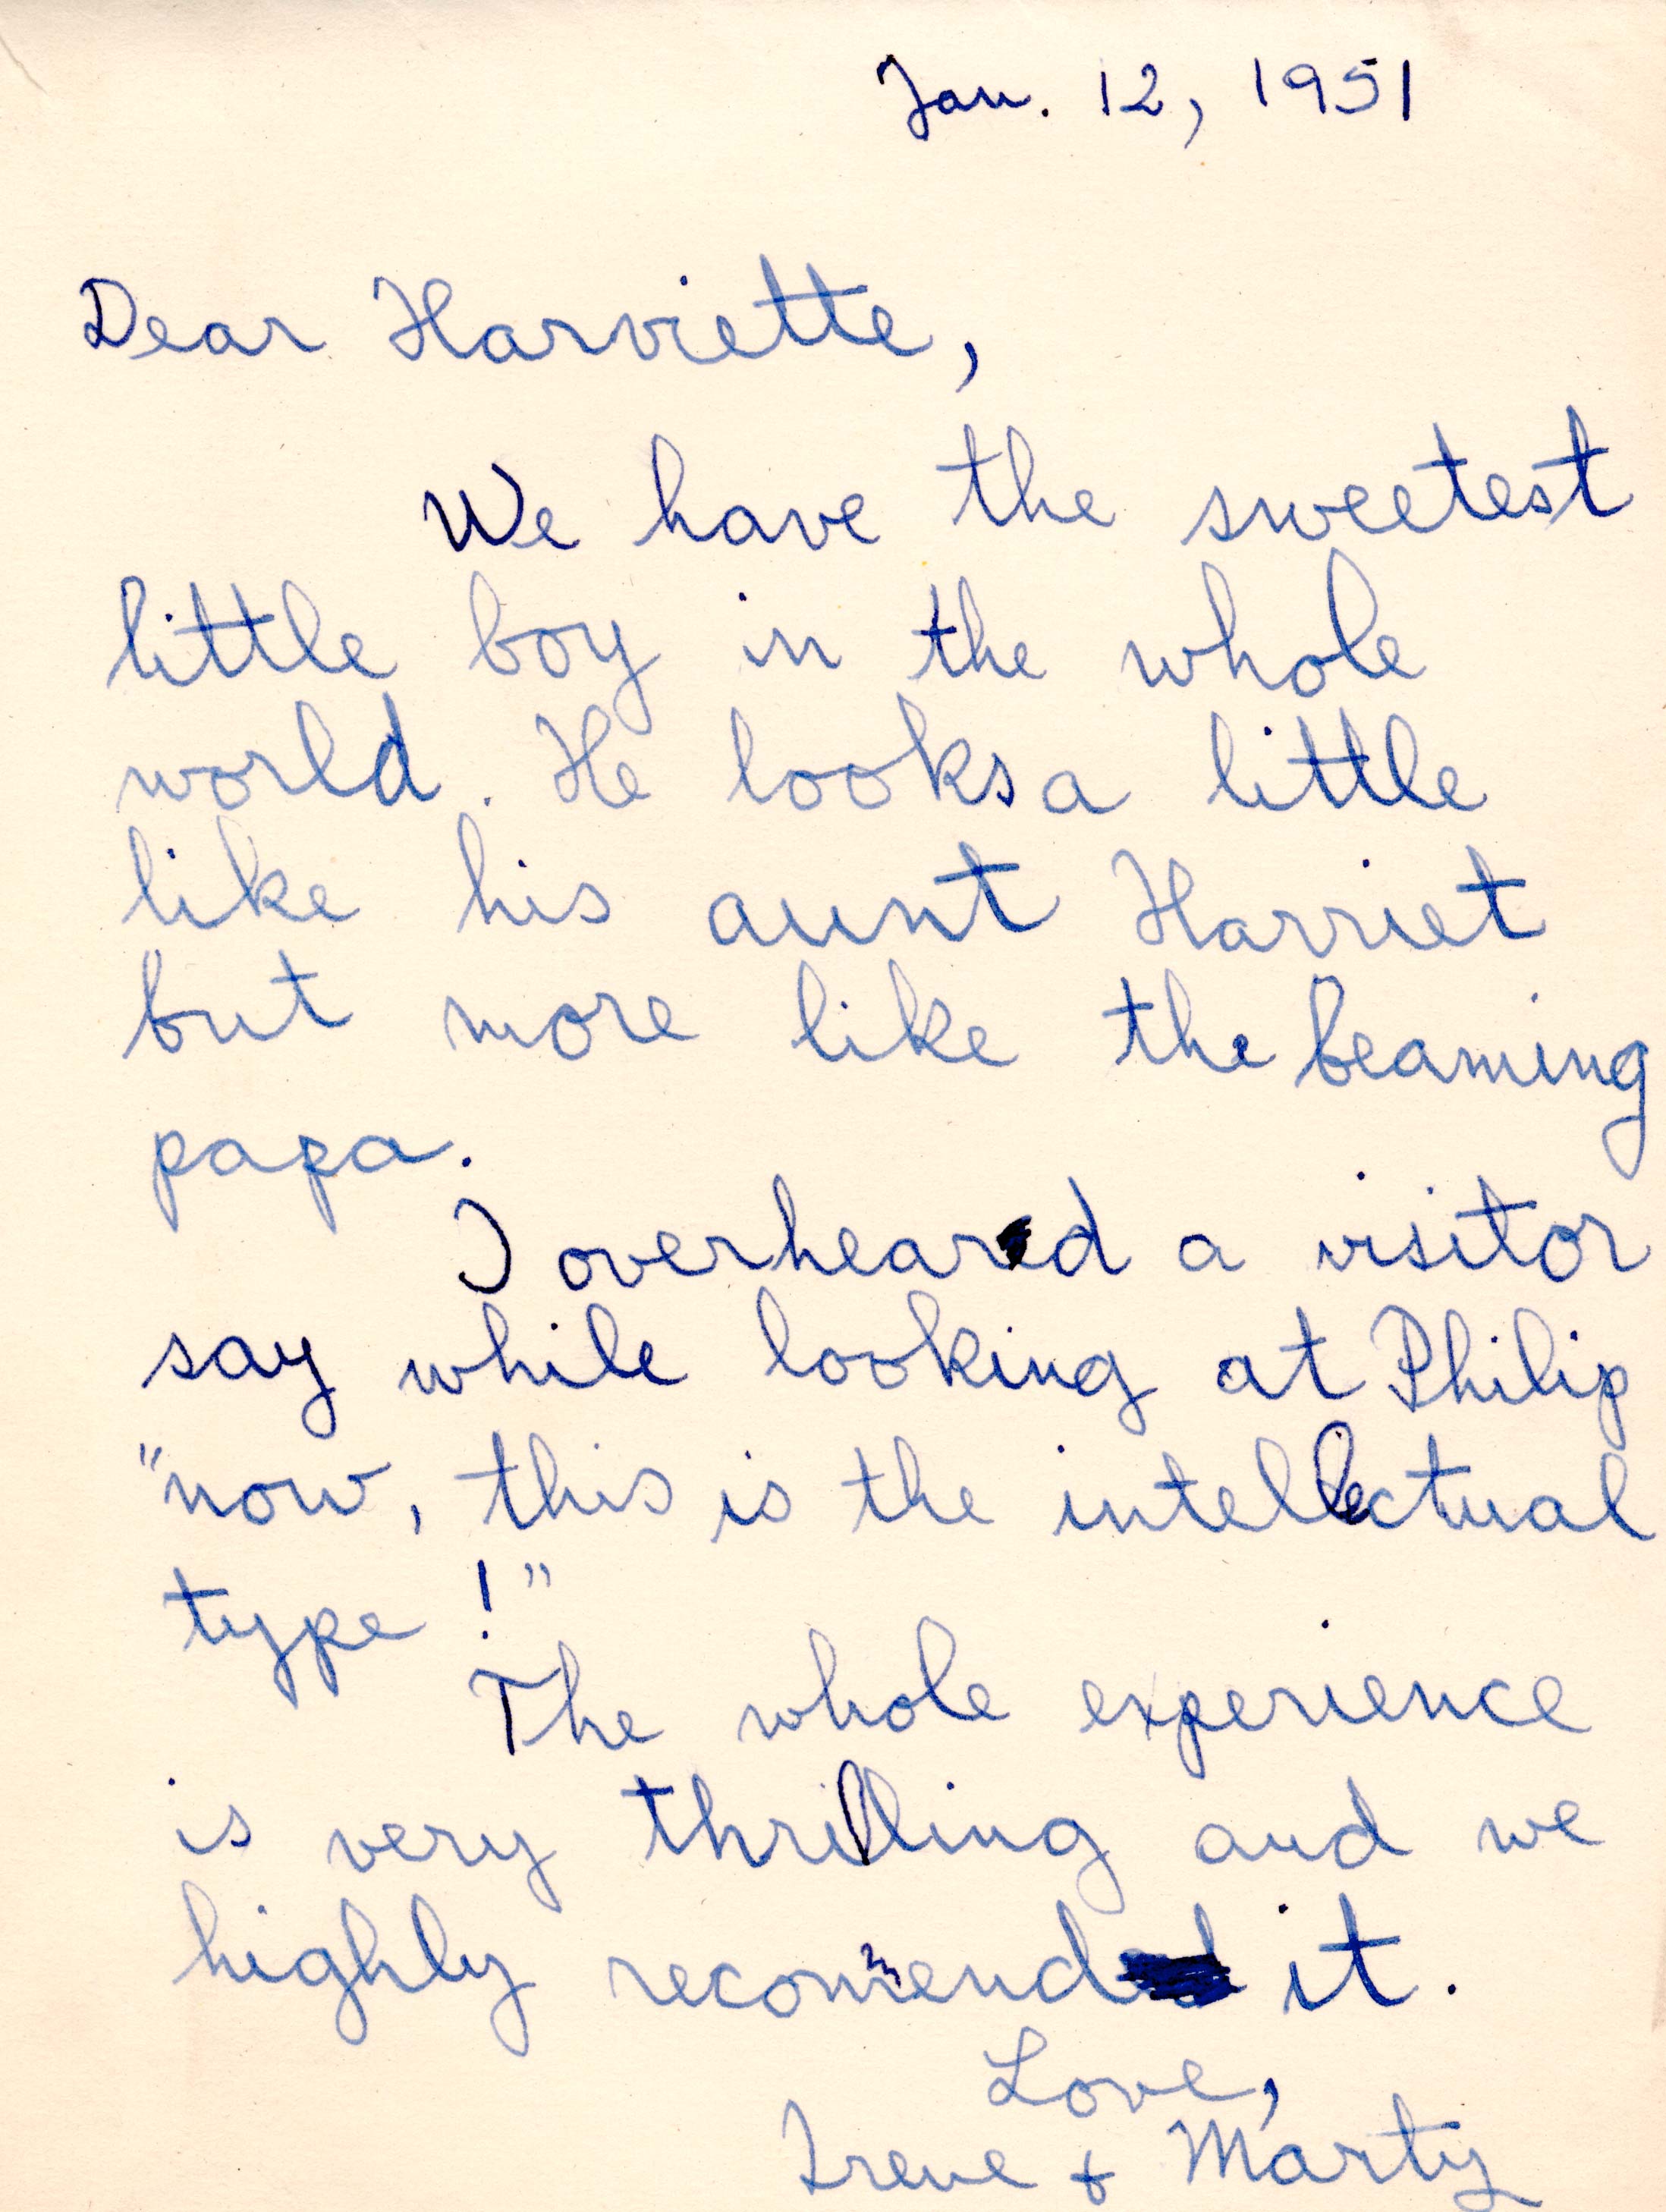 Jan. 12, 1951
Dear Harviette,
We have the sweetest
little boy in the whole
world. He looks a little
like his aunt Harriet
but more like the beaming
papa.
I overheard a visitor
say while looking at Philip
"now, this is the intellectual
type!"
The whole experience
is very thrilling and we
highly recommend it.
Love,
Irene + Marty